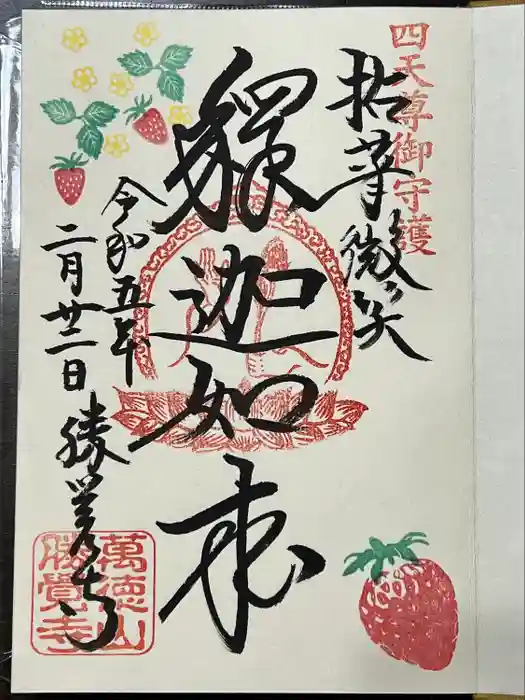 四天尊御守護
拈華微笑
釋迦如来
令和五年
二月廿二日
勝覺寺
萬徳山
勝覺寺